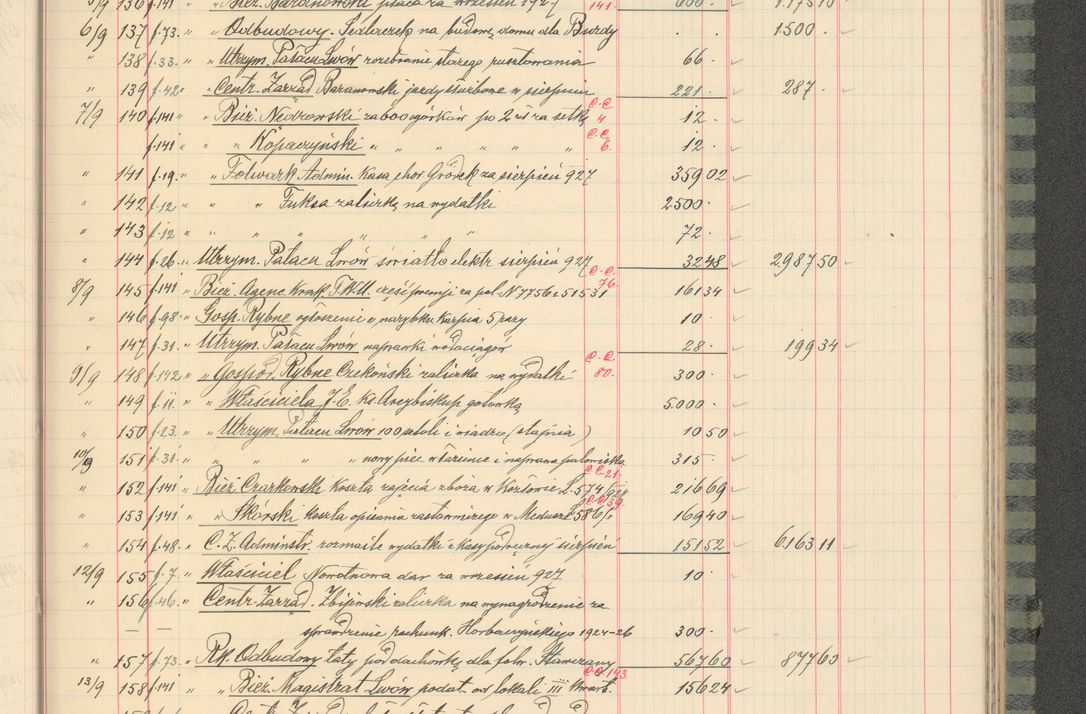 5/9 136 f.141 " " Bież. Baranowski płaca za wrzesień 927 141. 600 . 1.175 10
6/9 137 f.73. " " Odbudowy. Sedlaczek na budowę domu dla Burdy . . 1500 .
" 138 f.33. " " Utrzym. Pałacu Lwów rozebranie starego rusztowania 66 .
" 139 f.42. " Centr. Zarząd Baranowski jazdy służbowe w sierpniu 221 . 287 .
7/9 140 f.141 " " Bież. Nedrowski za 600 ogórków po 2 zł za setkę C.C. 4 12 .
f.141 " " " Kopaczyński " " " " " " C.C. 6. 12 .
" 141 f.19. " " Folwark. Admin. Kasa chor. Gródek za sierpień 927 359 02
" 142 f.12 " " " Fuksa zaliczkę na wydatki 2500 .
" 143 f.12 " " " " " " 72 .
" 144 f.26. " Utrzym. Pałacu Lwów światło elektr sierpień 927 32 48 2987 50
8/9 145 f.141 " Bież. Agenc. Krak. T.W.U. część premji za pol. N 7756 i 51531 C.C. 76. 161 34
" 146 f.98. " Gosp. Rybne ogłoszenie o narybku karpia 5 razy 10 .
" 147 f.31. " Utrzym. Pałacu Lwów naprawki wodociągów 28 . 199 34
9/9 148 f.142 " " Gospod. Rybne Czekoński zaliczka na wydatki C.C. 80. 300 .
" 149 f.11. " " Właściciela J.E. Ks. Arcybiskup gotówką 5.000 .
" 150 f.23. " " Utrzym. Pałacu Lwów 100 szkoli i wiadro (stajnia) 10 50
10/9 151 f.31. " " " " " nowy piec w łazience i naprawa paleniska 315 .
" 152 f.141 " Bież. Czarkowski koszta zajęcia zboża w Kozłowie L. 574/927 C.C. 21. 216 69
" 153 f.141 " " Skorski koszta opisania zastawniczego w Meduse 586/ C.C. 39. 169 40
" 154 f.48. " C.Z. Administr. rozmaite wydatki z Kasy podręcznej sierpień 151 52 6163 11
12/9 155 f.7. " Właściciel Nowotnowa dar za wrzesień 927 10 .
" 156 f.46. " Centr. Zarząd. Zbijewski zaliczka na wynagrodzenie za
— — sprawdzenie rachunk. Horbaczyńskiego 1924-26 300 .
" 157 f.73. " Rk. Odbudowy łaty pod dachówkę dla folw. Stawczany 567 60 877 60
13/9 158 f.141 " " Bież. Magistrat Lwów podat. od lokali III kwart. C.C. 143. 156 24